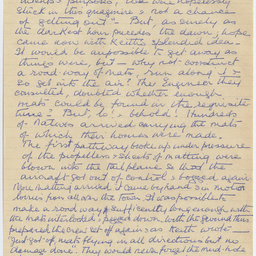 stuck in this quagmire & not a chance
of getting out". But, as surely as
the darkest hour precedes the dawn, hope
came with Keith's splendid idea.
It would be impossible to get away as
things were, but — why not construct
a roadway of mats, run along it &
so get into the air? The Engineer they
consulted doubted whether enough
mats could be found in the requisite
time. But, lo, behold! Hundreds
of Natives arrived carrying the mats
of which their homes were made.
The first pathway broke up under pressure
of the propellers & sheets of matting were
blown into the tailplane so that the
aircraft got out of control & bogged again
More matting arrived, it came by hand & in motor
lorries from all over the town. It was possible to
make a roadway sufficiently long enough, with
the mats interlocked, pegged down. With the ground thus
prepared the crew set off again & as Keith wrote -
"Just got off, mats flying in all directions but no
damage done". They would never forget the mud-hole